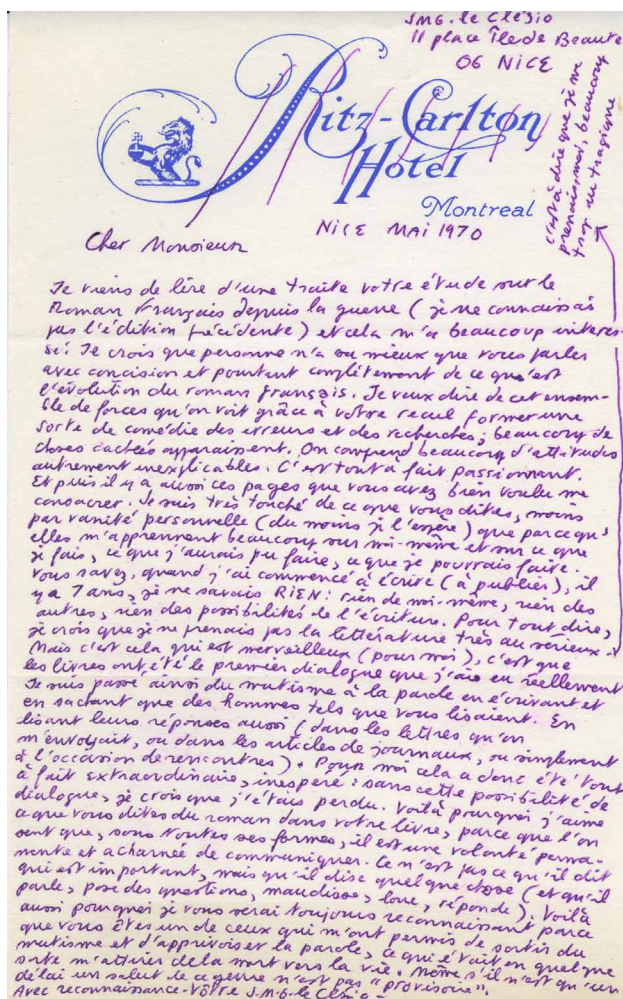 J.M.G. le Clézio
11 place Île de Beauté
06 NICE
Ritz-Carlton
Hotel
Montreal
c'est à dire que je me
prenais, moi, beaucoup
trop au tragique
NICE MAI 1970
Cher Monsieur
Je viens de lire d'une traite votre étude sur le
Roman Français depuis la guerre (je ne connaissais
pas l'édition précédente) et cela m'a beaucoup interes-
sé. Je crois que personne n'a su mieux que vous parler
avec concision et pourtant complètement de ce qu'est
l'évolution du roman français. Je veux dire de cet ensem-
ble de forces qu'on voit grâce à votre recul former une
sorte de comédie des erreurs et des recherches; beaucoup de
choses cachées apparaissent. On comprend beaucoup d'attitudes
autrement inexplicables. C'est tout à fait passionnant.
Et puis il y a aussi ces pages que vous avez bien voulu me
consacrer. Je suis très touché de ce que vous dites, moins
par vanité personnelle (du moins je l'espère) que parce qu'
elles m'apprennent beaucoup sur moi-même et sur ce que
je fais, ce que j'aurais pu faire, ce que je pourrais faire.
Vous savez, quand j'ai commencé à écrire (à publier), il
y a 7 ans, je ne savais RIEN: rien de moi-même, rien des
autres, rien des possibilités de l'écriture. Pour tout dire,
je crois que je ne prenais pas la littérature très au sérieux.
Mais c'est cela qui est merveilleux (pour moi), c'est que
les livres ont été le premier dialogue que j'aie eu réellement
Je suis passé ainsi du mutisme à la parole en écrivant et
en sachant que des hommes tels que vous lisaient. En
lisant leurs réponses aussi (dans les lettres qu'on
m'envoyait, ou dans les articles de journaux, ou simplement
à l'occasion de rencontres). Pour moi cela a donc été tout
à fait extraordinaire, inespéré: sans cette possibilité de
dialogue, je crois que j'étais perdu. Voilà pourquoi j'aime
ce que vous dites du roman dans votre livre, parce que l'on
sent que, sous toutes ses formes, il est une volonté perma-
nente et acharnée de communiquer. Ce n'est pas ce qu'il dit
qui est important, mais qu'il dise quelque chose (et qu'il
parle, pose des questions, maudisse, loue, réponde). Voilà
aussi pourquoi je vous serai toujours reconnaissant parce
que vous êtes un de ceux qui m'ont permis de sortir du
mutisme et d'apprivoiser la parole, ce qui était en quelque
sorte m'attirer de la mort vers la vie. Même s'il n'est qu'un
délai un salut de ce genre n'est pas "provisoire".
Avec reconnaissance - Vôtre J.M.G. le Clézio -